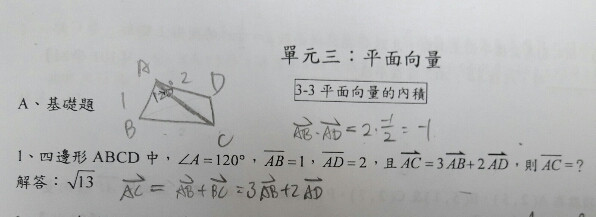 單元三：平面向量
3-3 平面向量的內積
A、基礎題
A 2 D
120°
1
B C
$\overrightarrow{AB}\cdot\overrightarrow{AD}=2\cdot\frac{-1}{2}=-1$
1、四邊形 ABCD 中，∠A=120°，$\overline{AB}$=1，$\overline{AD}$=2，且 $\overrightarrow{AC}$=3$\overrightarrow{AB}$+2$\overrightarrow{AD}$，則 $\overline{AC}$=？
解答：√13 $\overrightarrow{AC}=\overrightarrow{AB}+\overrightarrow{BC}=3\overrightarrow{AB}+2\overrightarrow{AD}$